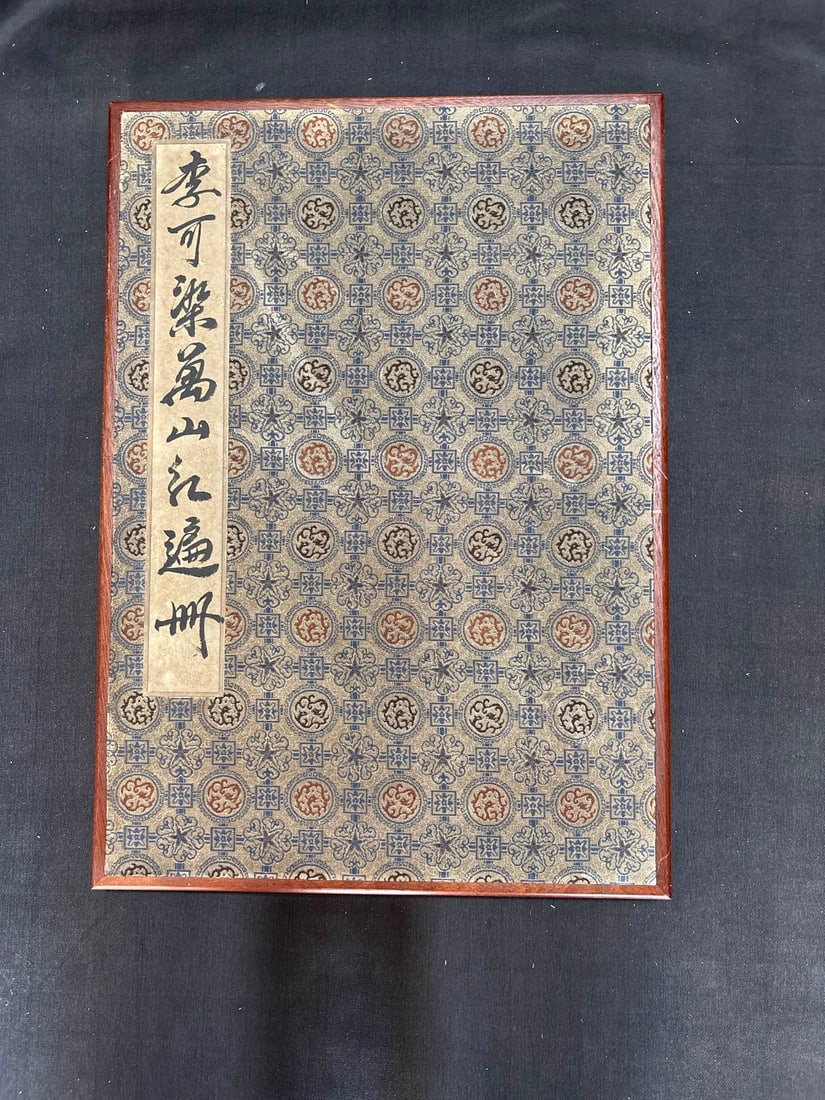 李可染萬山紅遍册